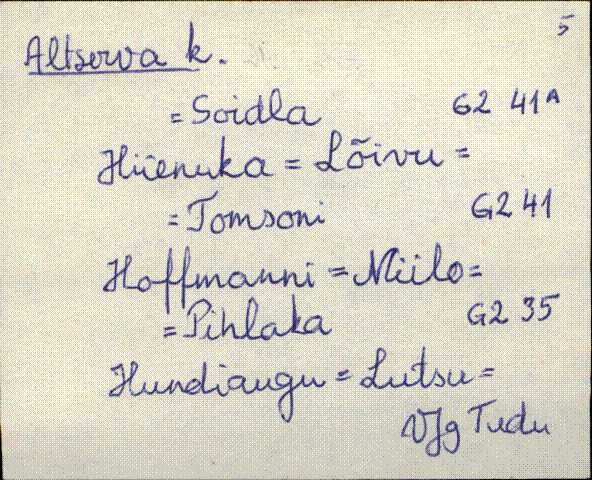 5
Altserva k.
= Soidla G2 41A
Hiienuka = Lõivu =
= Tomsoni G2 41
Hoffmanni = Niilo =
= Pihlaka G2 35
Hundiaugu = Lutsu =
VJg Tudu